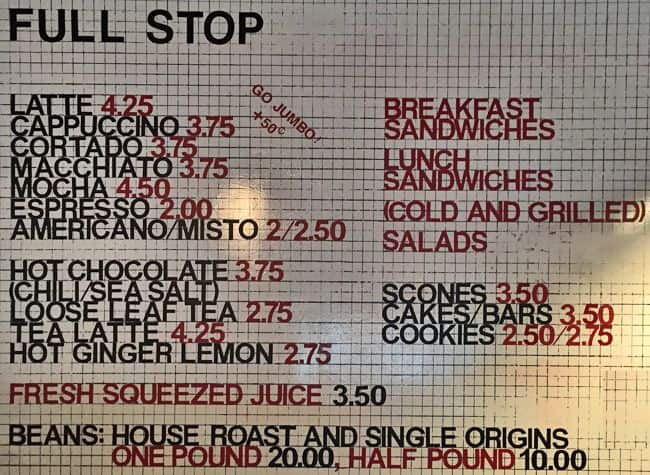 FULL STOP
LATTE 4.25
CAPPUCCINO 3.75
CORTADO 3.75
MACCHIATO 3.75
MOCHA 4.50
ESPRESSO 2.00
AMERICANO/MISTO 2/2.50
GO JUMBO!
+50¢
HOT CHOCOLATE 3.75
(CHILI/SEA SALT)
LOOSE LEAF TEA 2.75
TEA LATTE 4.25
HOT GINGER LEMON 2.75
BREAKFAST
SANDWICHES
LUNCH
SANDWICHES
(COLD AND GRILLED)
SALADS
SCONES 3.50
CAKES/BARS 3.50
COOKIES 2.50/2.75
FRESH SQUEEZED JUICE 3.50
BEANS: HOUSE ROAST AND SINGLE ORIGINS
ONE POUND 20.00, HALF POUND 10.00